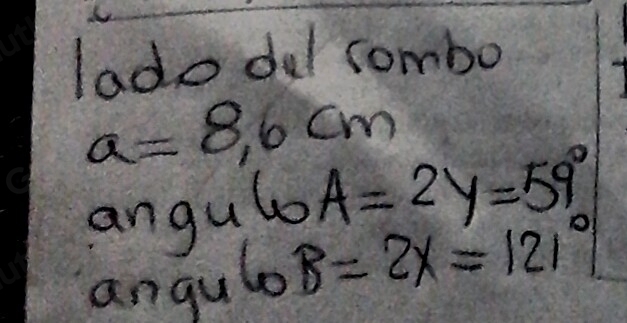 lado del rombo
a = 8,6 cm
angulo A = 2y = 59°
angulo B = 2x = 121°